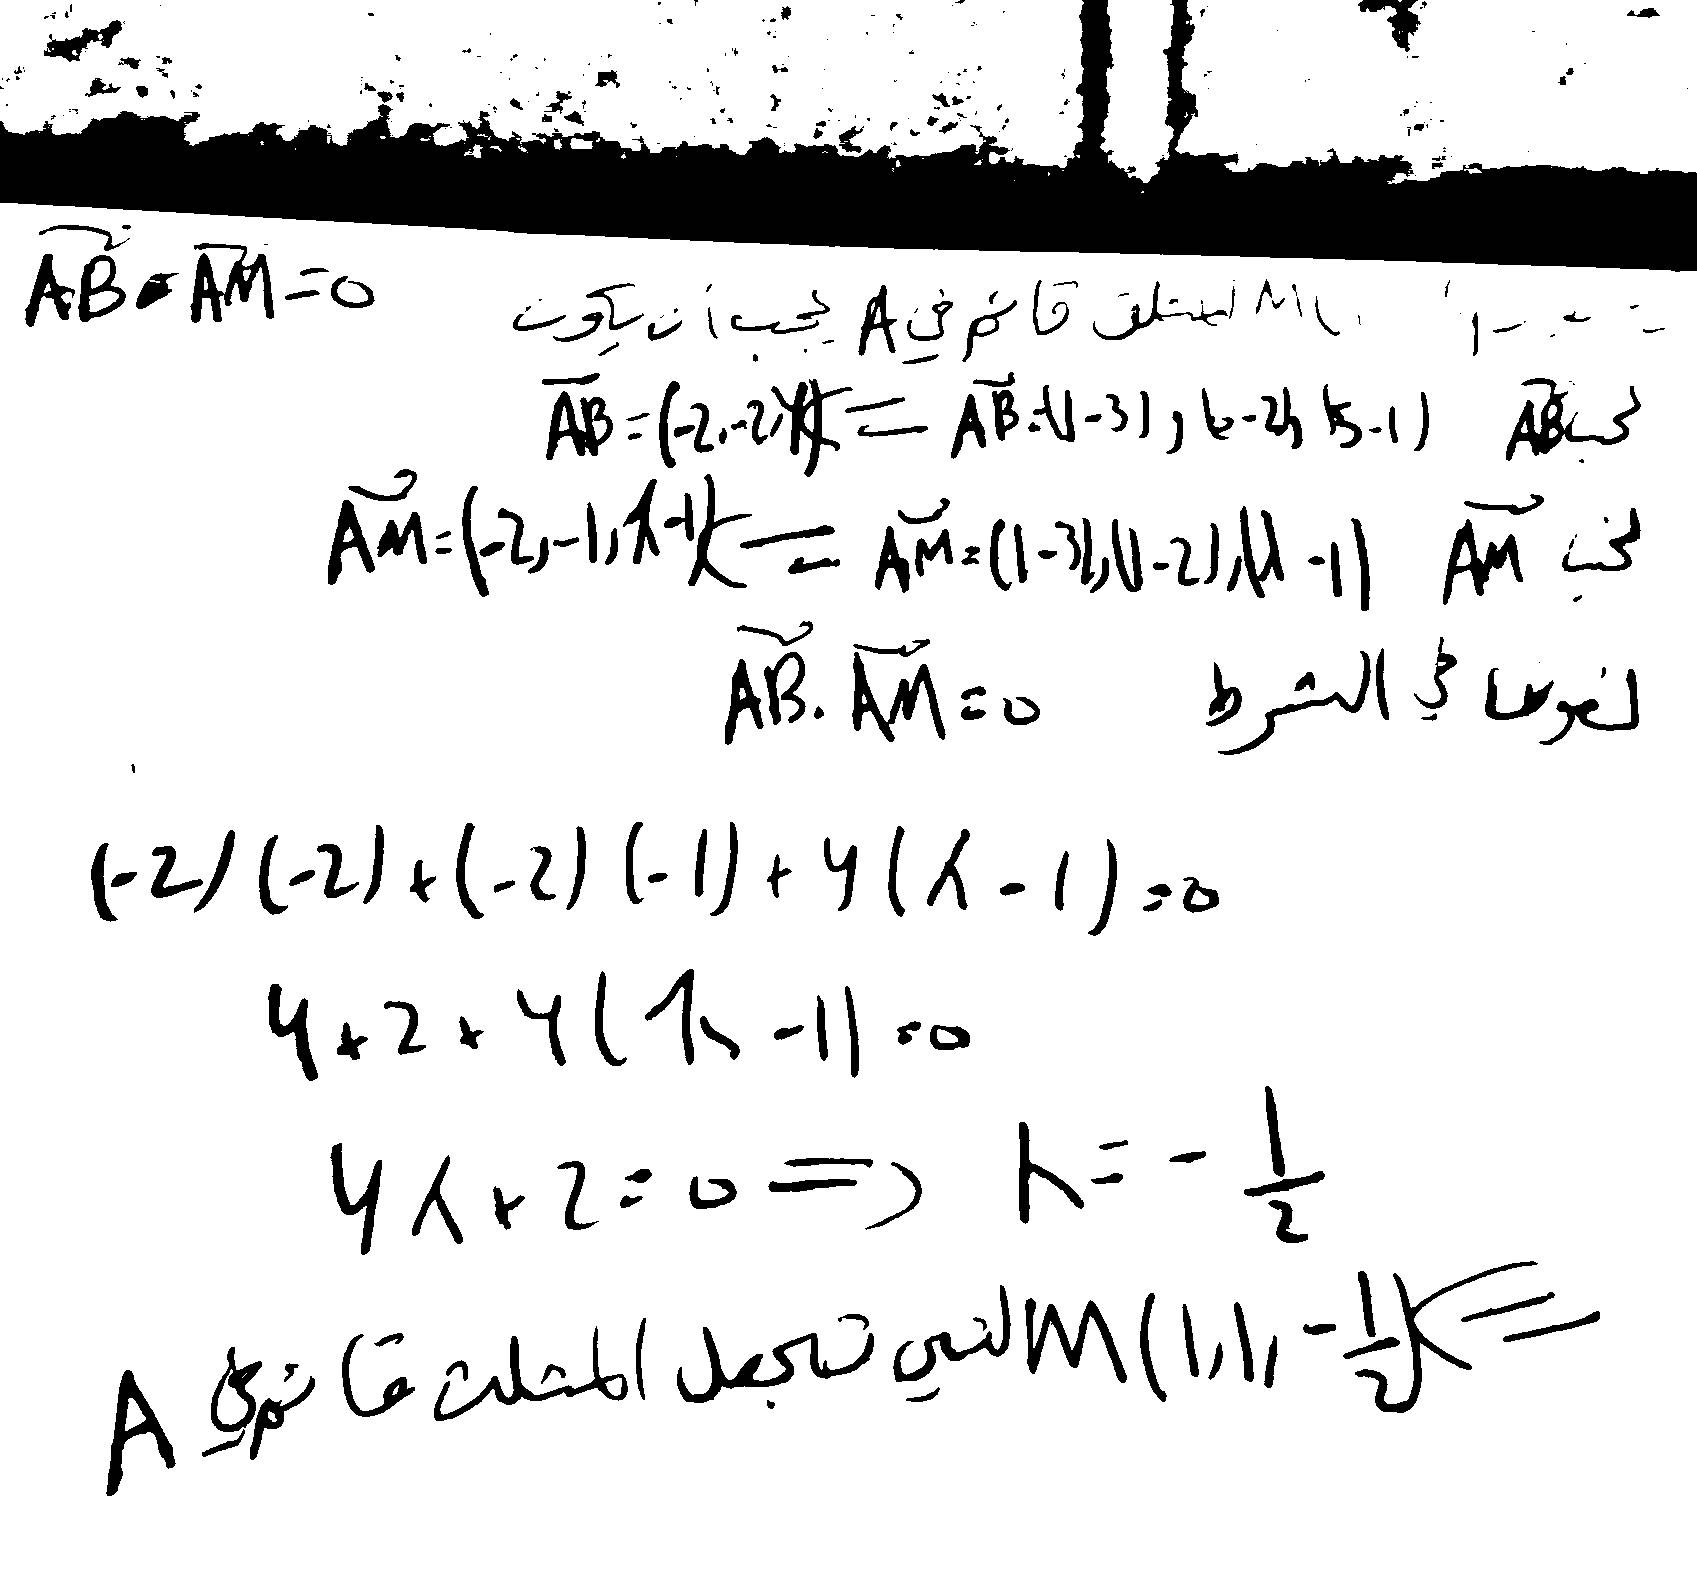 M المثلث قائم في A يجب أن يكون $\vec{AB} \cdot \vec{AM} = 0$
نحسب $\vec{AB}$ $\vec{AB} = (1-3), (0-2), (5-1)$ ⇐ $\vec{AB} = (-2, -2, 4)$
نحسب $\vec{AM}$ $\vec{AM} = (1-3), (1-2), (λ-1)$ ⇐ $\vec{AM} = (-2, -1, λ-1)$
نعوضها في الشرط $\vec{AB} \cdot \vec{AM} = 0$
(-2)(-2)+(-2)(-1)+4(λ-1)=0
4+2+4(λ-1)=0
4λ+2=0 ⇒ λ=-\frac{1}{2}
⇐ M(1,1,-\frac{1}{2}) التي تجعل المثلث قائم في A